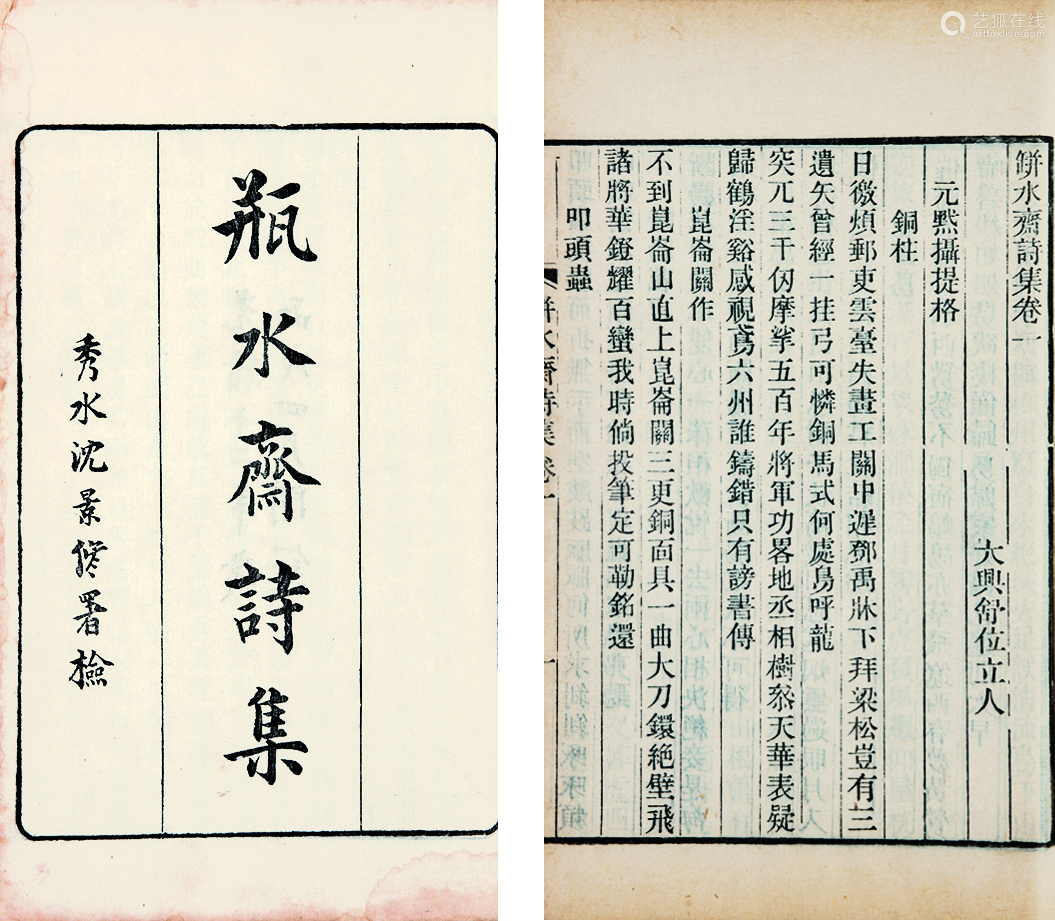 瓶水齋詩集
秀水沈景修署檢
缾水齋詩集卷一
大興舒位立人
元黙攝提格
銅柱
日徼煩郵吏雲臺失畫工關中遲鄧禹牀下拜梁松豈有三
遺矢曾經一挂弓可憐銅馬式何處鳥呼龍
突兀三千仞摩挲五百年將軍功畧地丞相樹叅天華表疑
歸鶴淫谿感視鳶六州誰鑄錯只有謗書傳
崑崙關作
不到崑崙山直上崑崙關三更銅面具一曲大刀鐶絶壁飛
諸將華鐙耀百蠻我時倘投筆定可勒銘還
叩頭蟲
缾水齋詩集 卷一
一
艺狐在线
artfoxlive.com